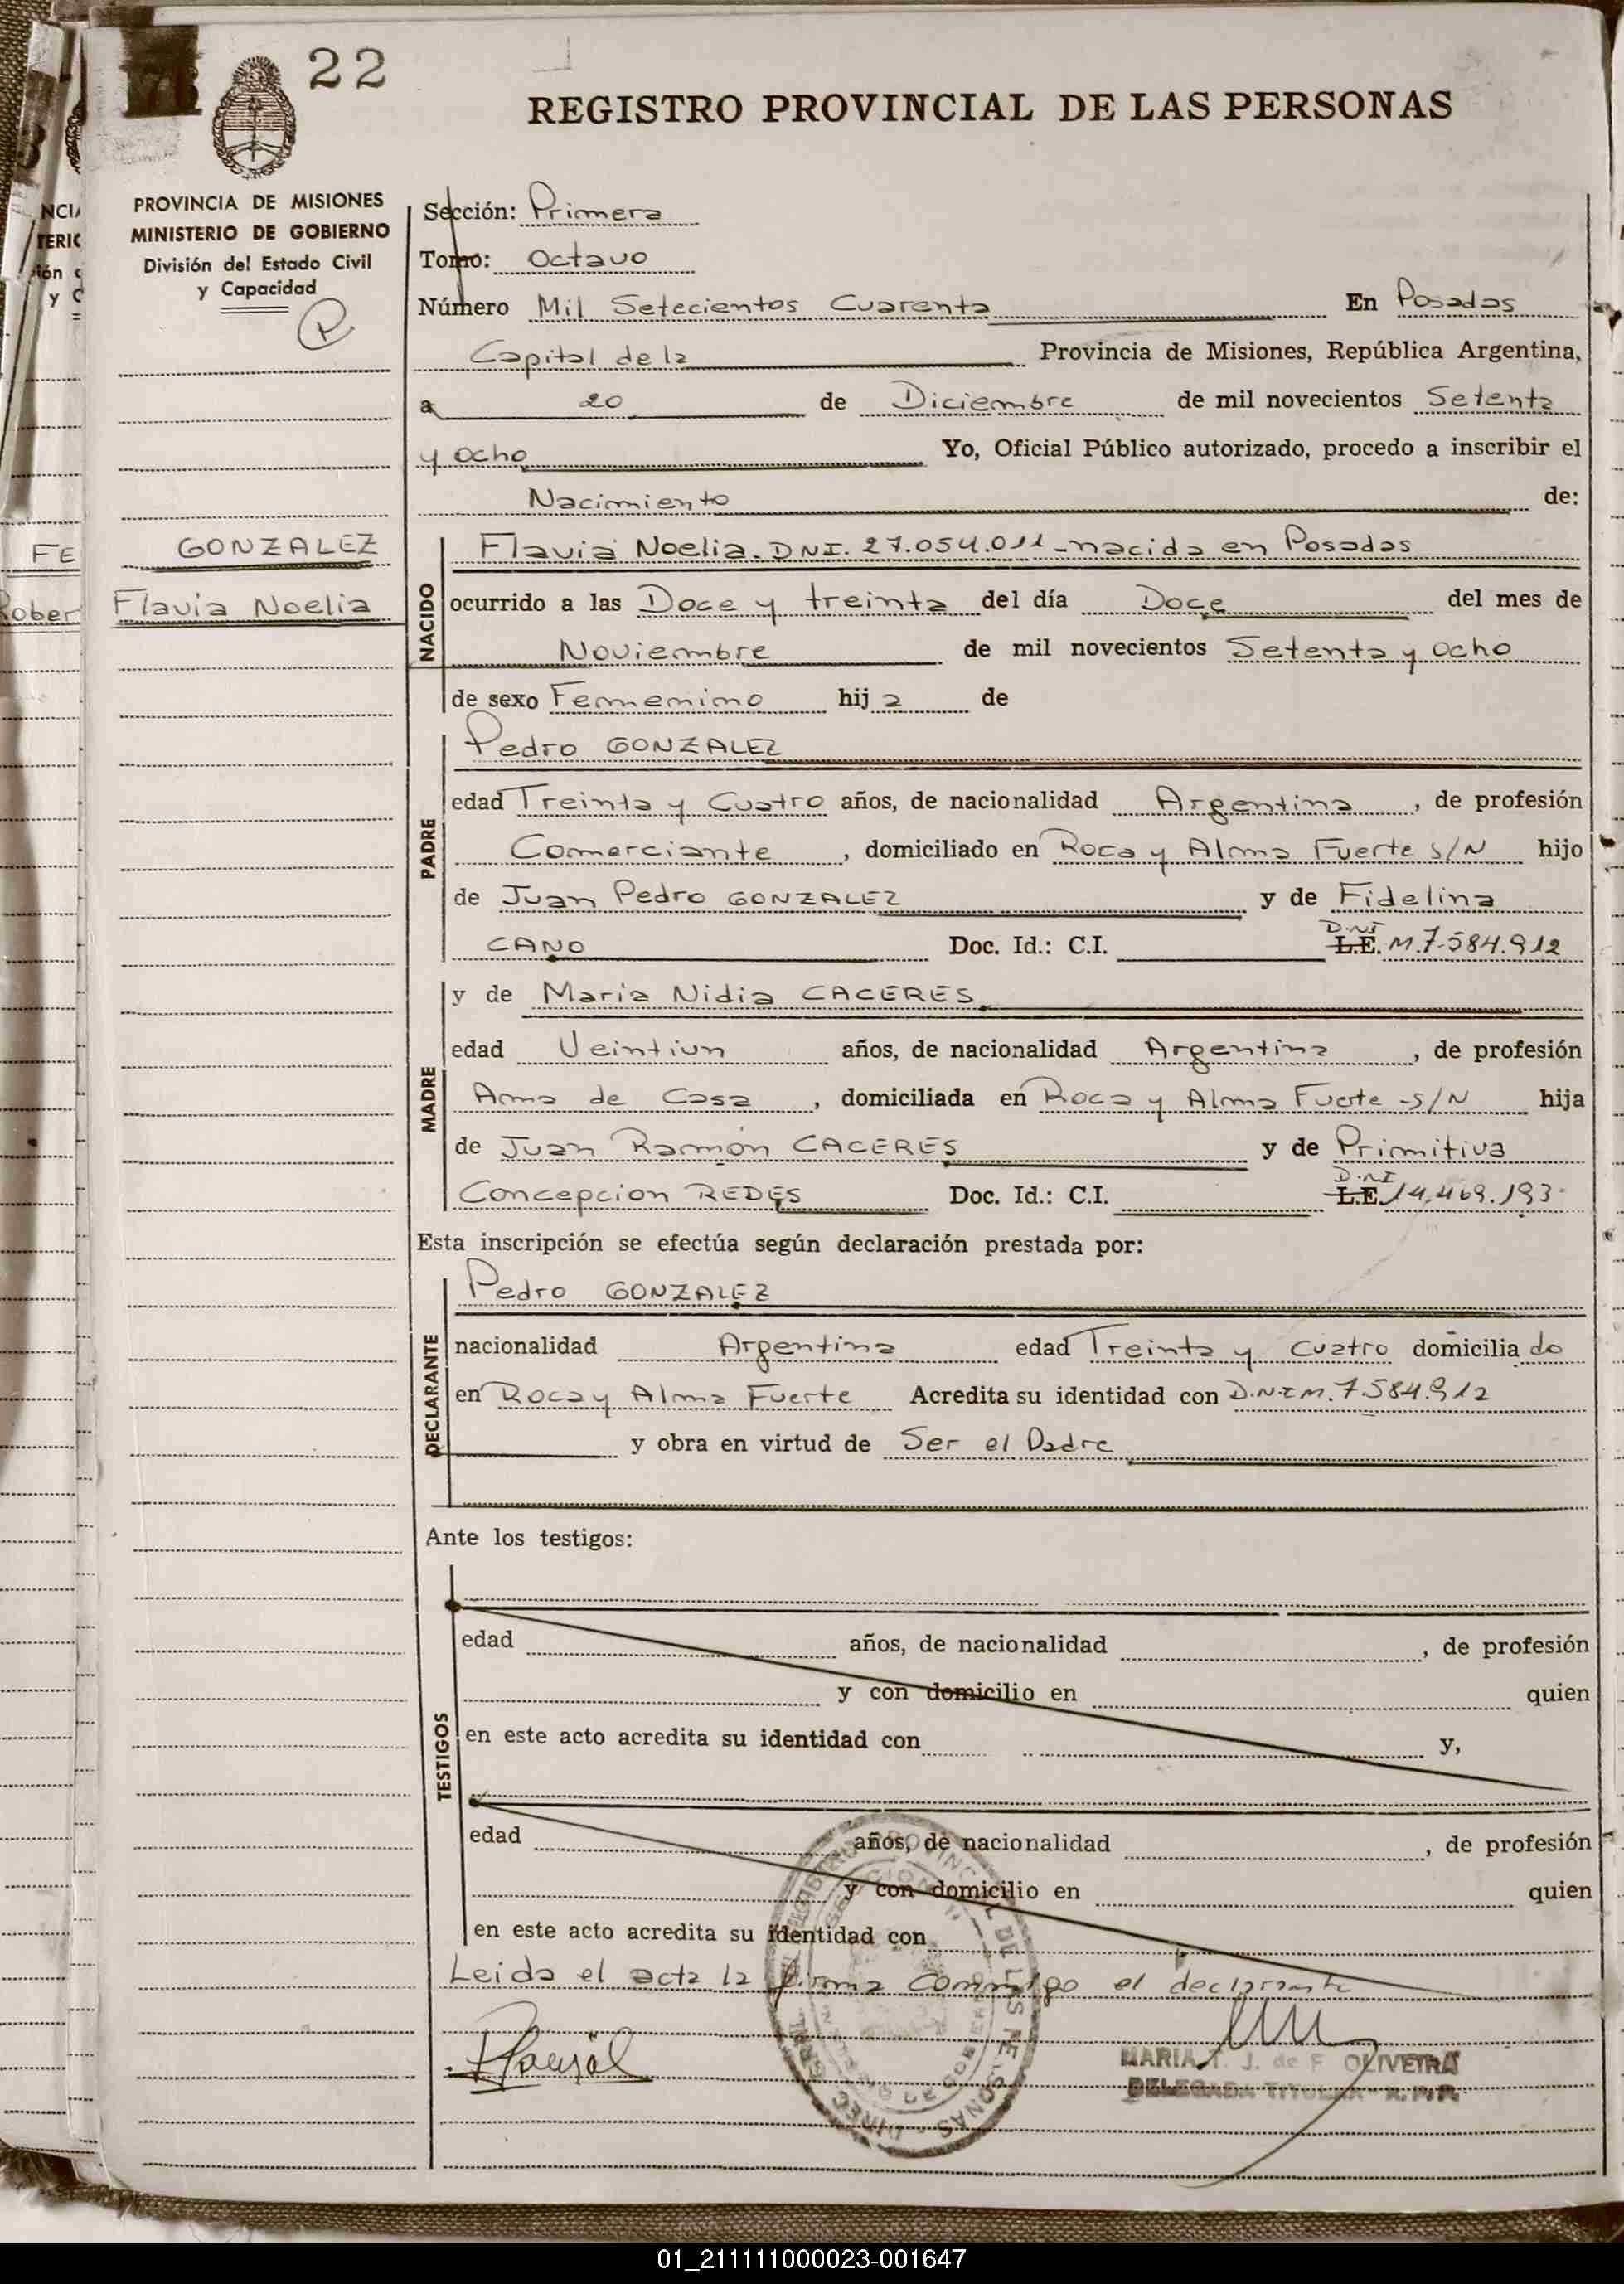 22
REGISTRO PROVINCIAL DE LAS PERSONAS
PROVINCIA DE MISIONES
MINISTERIO DE GOBIERNO
División del Estado Civil
y Capacidad
Sección: Primera
Tomo: Octavo
Número Mil Setecientos Cuarenta En Posadas
Capital de la Provincia de Misiones, República Argentina,
a 20 de Diciembre de mil novecientos Setenta
y ocho Yo, Oficial Público autorizado, procedo a inscribir el
Nacimiento de:
GONZALEZ
Flavia Noelia
NACIDO
Flavia Noelia. DNI. 27.054.011 - nacida en Posadas
ocurrido a las Doce y treinta del día Doce del mes de
Noviembre de mil novecientos Setenta y ocho
de sexo Femenino hija de
PADRE
Pedro GONZALEZ
edad Treinta y Cuatro años, de nacionalidad Argentina, de profesión
Comerciante, domiciliado en Roca y Alma Fuerte s/N hijo
de Juan Pedro GONZALEZ y de Fidelina
CANO Doc. Id.: C.I. L.E. D.NI M.7.584.912
MADRE
y de Maria Nidia CACERES
edad Veintiun años, de nacionalidad Argentina, de profesión
Ama de Casa, domiciliada en Roca y Alma Fuerte - s/N hija
de Juan Ramón CACERES y de Primitiva
Concepcion REDES Doc. Id.: C.I. L.E D.NI 14.469.193
Esta inscripción se efectúa según declaración prestada por:
DECLARANTE
Pedro GONZALEZ
nacionalidad Argentina edad Treinta y Cuatro domiciliado
en Roca y Alma Fuerte Acredita su identidad con D.N.I M.7.584.912
y obra en virtud de Ser el Padre
Ante los testigos:
TESTIGOS
edad años, de nacionalidad , de profesión
y con domicilio en quien
en este acto acredita su identidad con y,
edad años, de nacionalidad , de profesión
y con domicilio en quien
en este acto acredita su identidad con
Leida el acta la firma conmigo el declarante
MARIA J. de F. OLIVEIRA
DELEGADA TITULAR R.P.P.
01_211111000023-001647